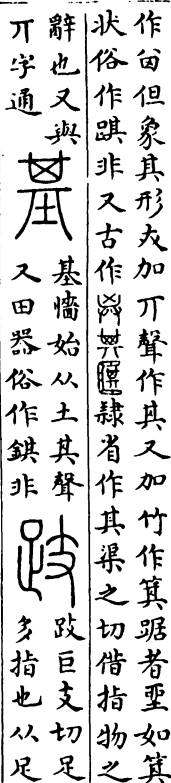 作但象其形加丌聲作其又加竹作箕踞者㘴如箕
狀俗作踑非又古作隷省作其渠之切借指物之
辭也又與
丌字通
基
基墻始从土其聲
又田器俗作錤非
跂
跂巨支切足
多指也从足